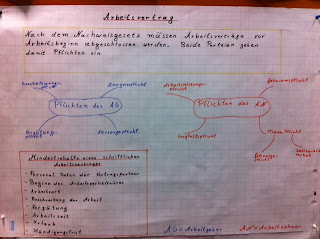 Arbeitsvertrag
Nach dem Nachweisgesetz müssen Arbeitsverträge vor
Arbeitsbeginn abgeschlossen werden. Beide Parteien gehen
damit Pflichten ein
Beschäftigungs-
pflicht
Zeugnispflicht
Pflichten des AG
Vergütung
pflicht
Fürsorgepflicht
Arbeitsleistungs-
pflicht
Gehorsamspflicht
Pflichten des AN
Sorgfaltspflicht
Treuepflicht
Mindestinhalte eines schriftlichen
Arbeitsvertrages
- Personal Daten der Vertragspartner
- Beginn des Arbeitsverhältnisses
- Arbeitsort
- Beschreibung der Arbeit
- Vergütung
- Arbeitszeit
- Urlaub
- Kündigungsfrist
AG = Arbeitgeber
AN = Arbeitnehmer